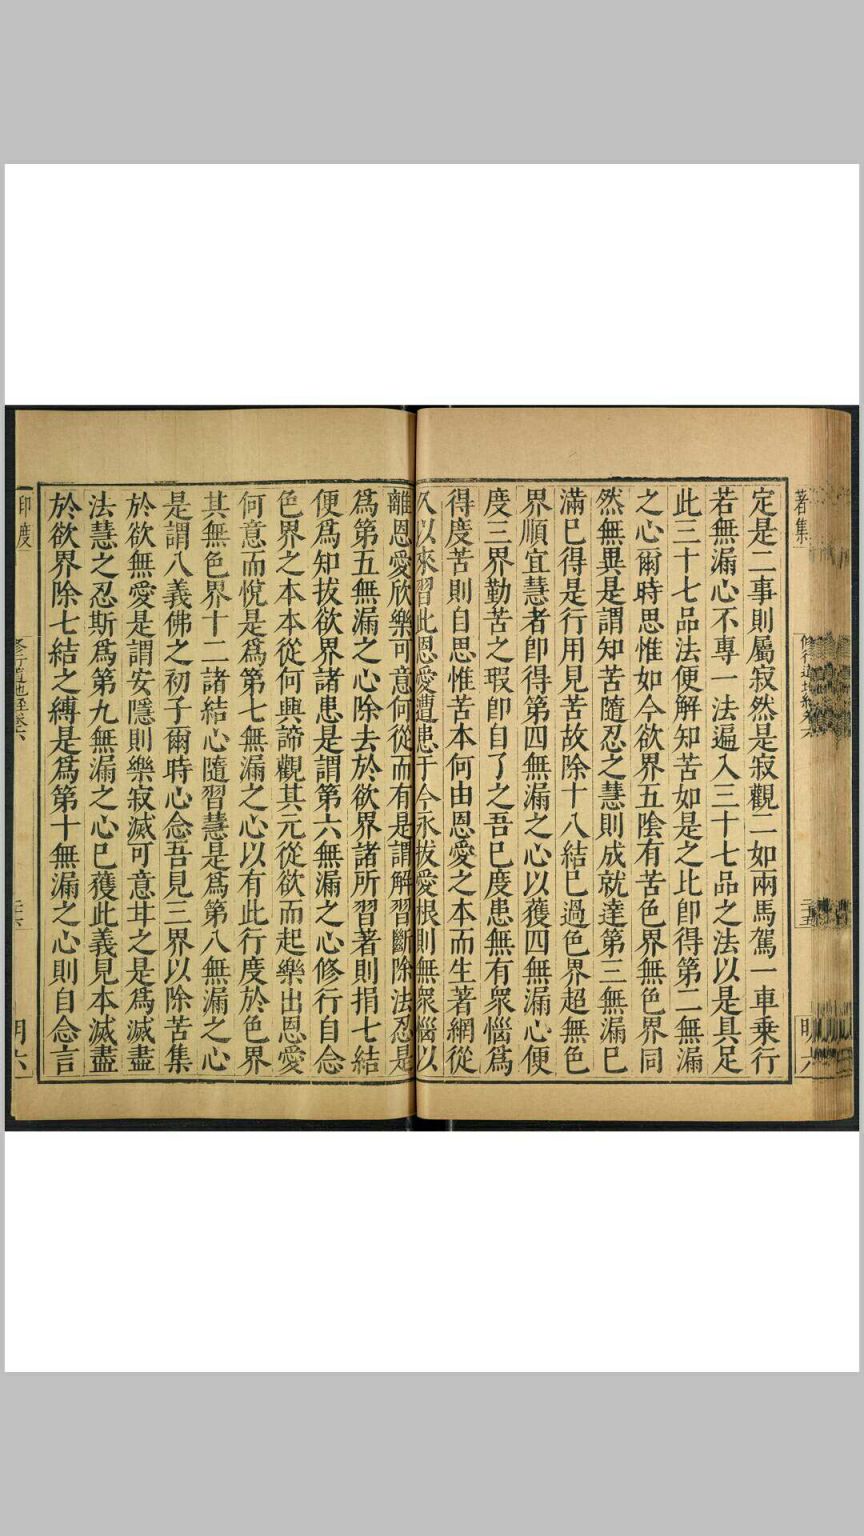 著集
修行道地經卷六
三五
明六
定是二事則屬寂然是寂觀二如兩馬駕一車乗行
若無漏心不專一法遍入三十七品之法以是具足
此三十七品法便解知苦如是之比卽得第二無漏
之心爾時思惟如今欲界五陰有苦色界無色界同
然無異是謂知苦隨忍之慧則成就達第三無漏已
滿已得是行用見苦故除十八結已過色界超無色
界順宜慧者卽得第四無漏之心以獲四無漏心便
度三界勤苦之瑕卽自了之吾已度患無有衆惱爲
得度苦則自思惟苦本何由恩愛之本而生著網從
久以來習此恩愛遭患于今永拔愛根則無衆惱以
離恩愛欣樂可意何從而有是謂解習斷除法忍是
爲第五無漏之心除去於欲界諸所習著則捐七結
便爲知拔欲界諸患是謂第六無漏之心修行自念
色界之本本從何興諦觀其元從欲而起樂出恩愛
何意而悅是爲第七無漏之心以有此行度於色界
其無色界十二諸結心隨習慧是爲第八無漏之心
是謂八義佛之初子爾時心念吾見三界以除苦集
於欲無愛是謂安隱則樂寂滅可意甘之是爲滅盡
法慧之忍斯爲第九無漏之心已獲此義見本滅盡
於欲界除七結之縛是爲第十無漏之心則自念言
印度
修行道地經卷六
三六
明六